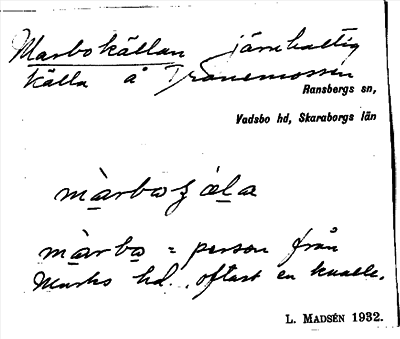 Marbokällan järnhaltig
källa å Tranemossen
Ransbergs sn,
Vadsbo hd, Skaraborgs län
màrbo = person från
Marks hd. oftast en knalle.
L. MADSÉN 1932.